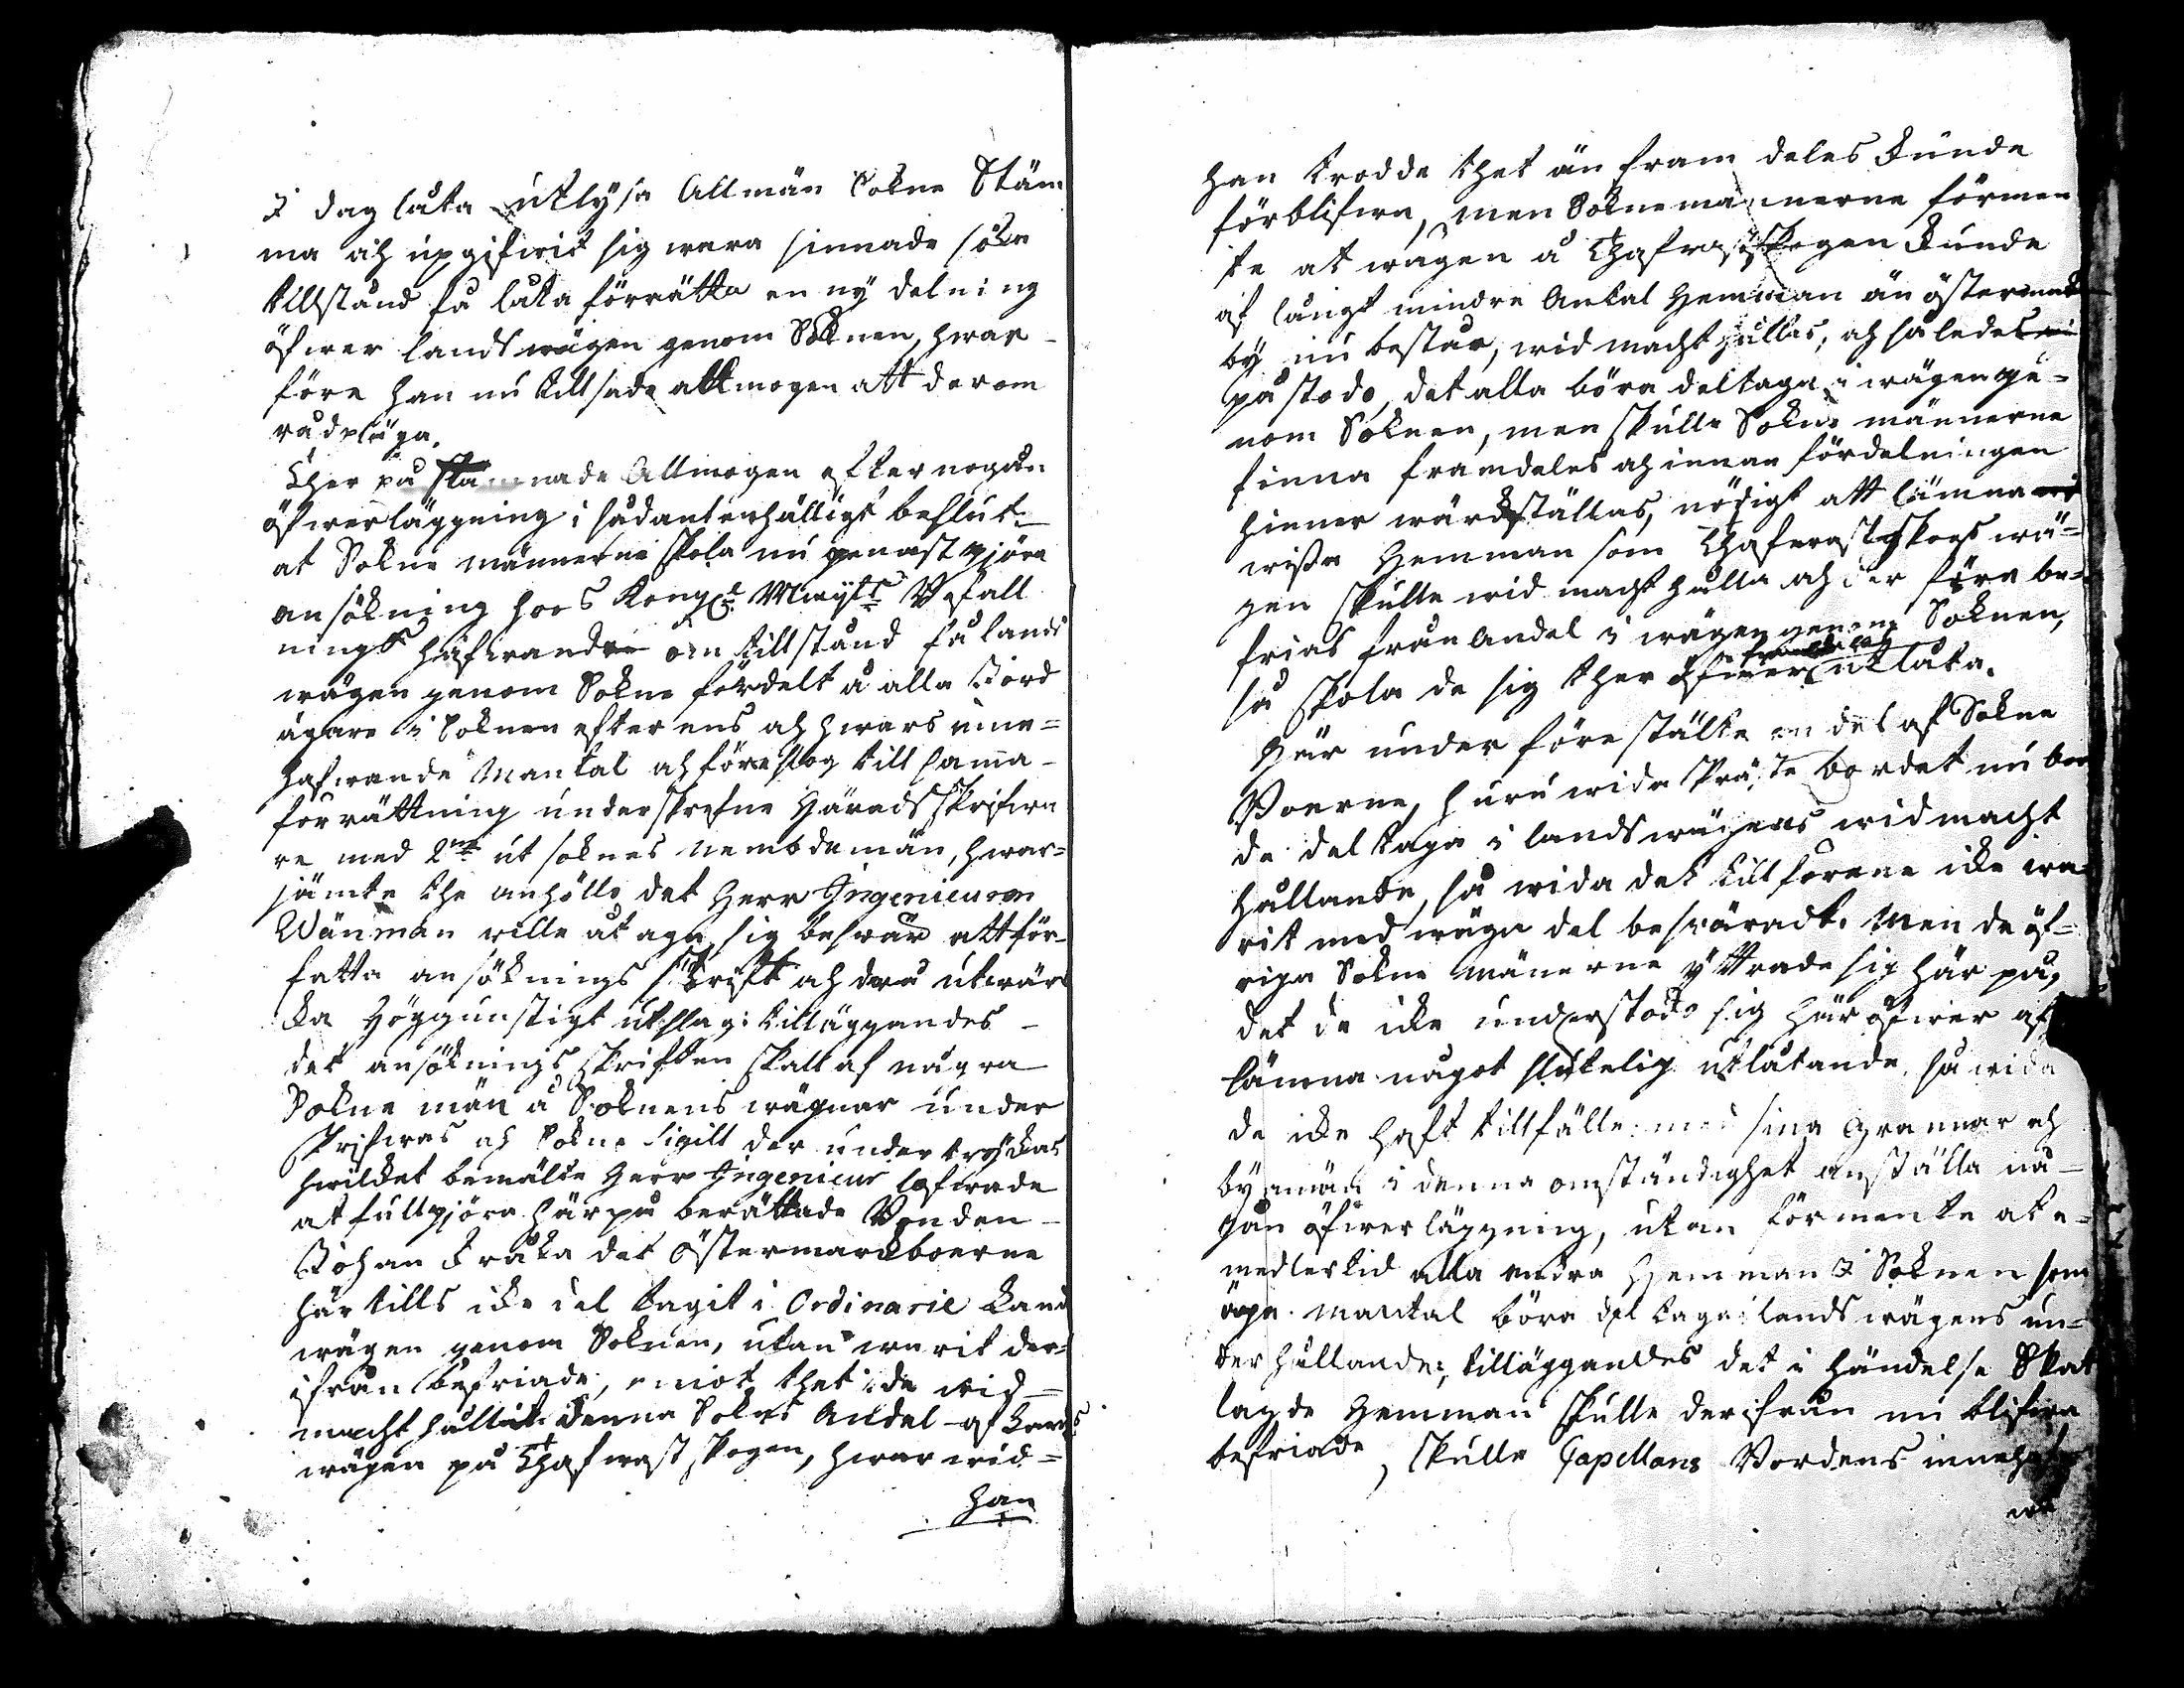 I dag låta utlysa Allmän Sokne Stäm
ma och upgifwit sig wara sinnade söka
tillstånd få låta förrätta en ny delning
öfwer landswägen genom Soknen, hwar-
före han nu tillsade allmogen att derom
rådpläga.
Ther på stannade Allmogen efter nogon
öfwerläggning i sådant enhälligt beslut:
at Sokne männerne skola nu genast gjöra
ansökning hoos Kongl Mayts Befall
nings hafwande om tillstånd få lands
wägen genom Sokne fördelt å alla Jord
ägare i Soknen efter ens och hwars inne=
hafwande Mantal och föreslog till sama-
förrättning underskrefne Härads skrifwa
re med 2ne ut soknes Nembdemän, hwar=
jämte the anhölls det Herr Ingenieuren
Wänman wille åt aga sig beswär att för-
fatta ansöknings skrift och derå utwär
ka Höggunstigt utslag: tilläggandes-
det ansöknings skriften skall af några
Sokne män å Soknens wägnar under
skrifwas och Sokne Sigill der under tryckas
hwilket bemälte Herr Ingenieur lofwade
at fullgjöra. Härpå berättade Bonden-
Johan Kråka det Östermarckboerne
här tills icke del tagit i Ordinarie Land
wägen genom Soknen, utan warit der=
ifrån befriade, emot thet de wid=
macht hullit denna Sokns Andel af Lands
wägen på Thafwast skogen, hwar wid=
han
han trodde thet än fram deles kunde
förblifwa, men Soknemännerne förmen
te at wägen å Thafwastskogen kunde
af långt mindre Antal Hemman än östermark
by nu bestar, wid macht hållas, och således
påstodo, det alla böra deltaga i wägen ge=
nom Soknen, men skulle Sokne männerne
finna framdeles och innan fördelningen
hinner wärckställas, nödigt att lämna
wissa Hemman som Thafwastskogs wä=
gen skulle wid macht hålla och der före be=
frias från andel i wägen genom Soknen,
så skola de sig ther öfwer framdeles utlåta.
Här under föreställte en del af Sokne
Boerne, huru wida Präste bordet nu bor
de del taga i landswägens widmacht
hållande, så wida det tillförene icke wa
rit med wäga del beswäradt. Men de öf=
riga Sokne Männerne yttrade sig här på,
det de icke understodo sig här öfwer af
lämna något slutelig utlåtande, så wida
de icke haft tillfälle med sina Grannar och
byamän i denna omständighet anställa nå-
gon öfwerläggning, utan förmente at e=
medlertid alla andra Hemman I Soknen som
äga mantal böra del taga i lands wägens un=
derhållande; tilläggandes det i händelse Skat
lagde Hemman skulle derifrån nu blifwa
befriade, skulle Capellans Bordens innehaf
wa